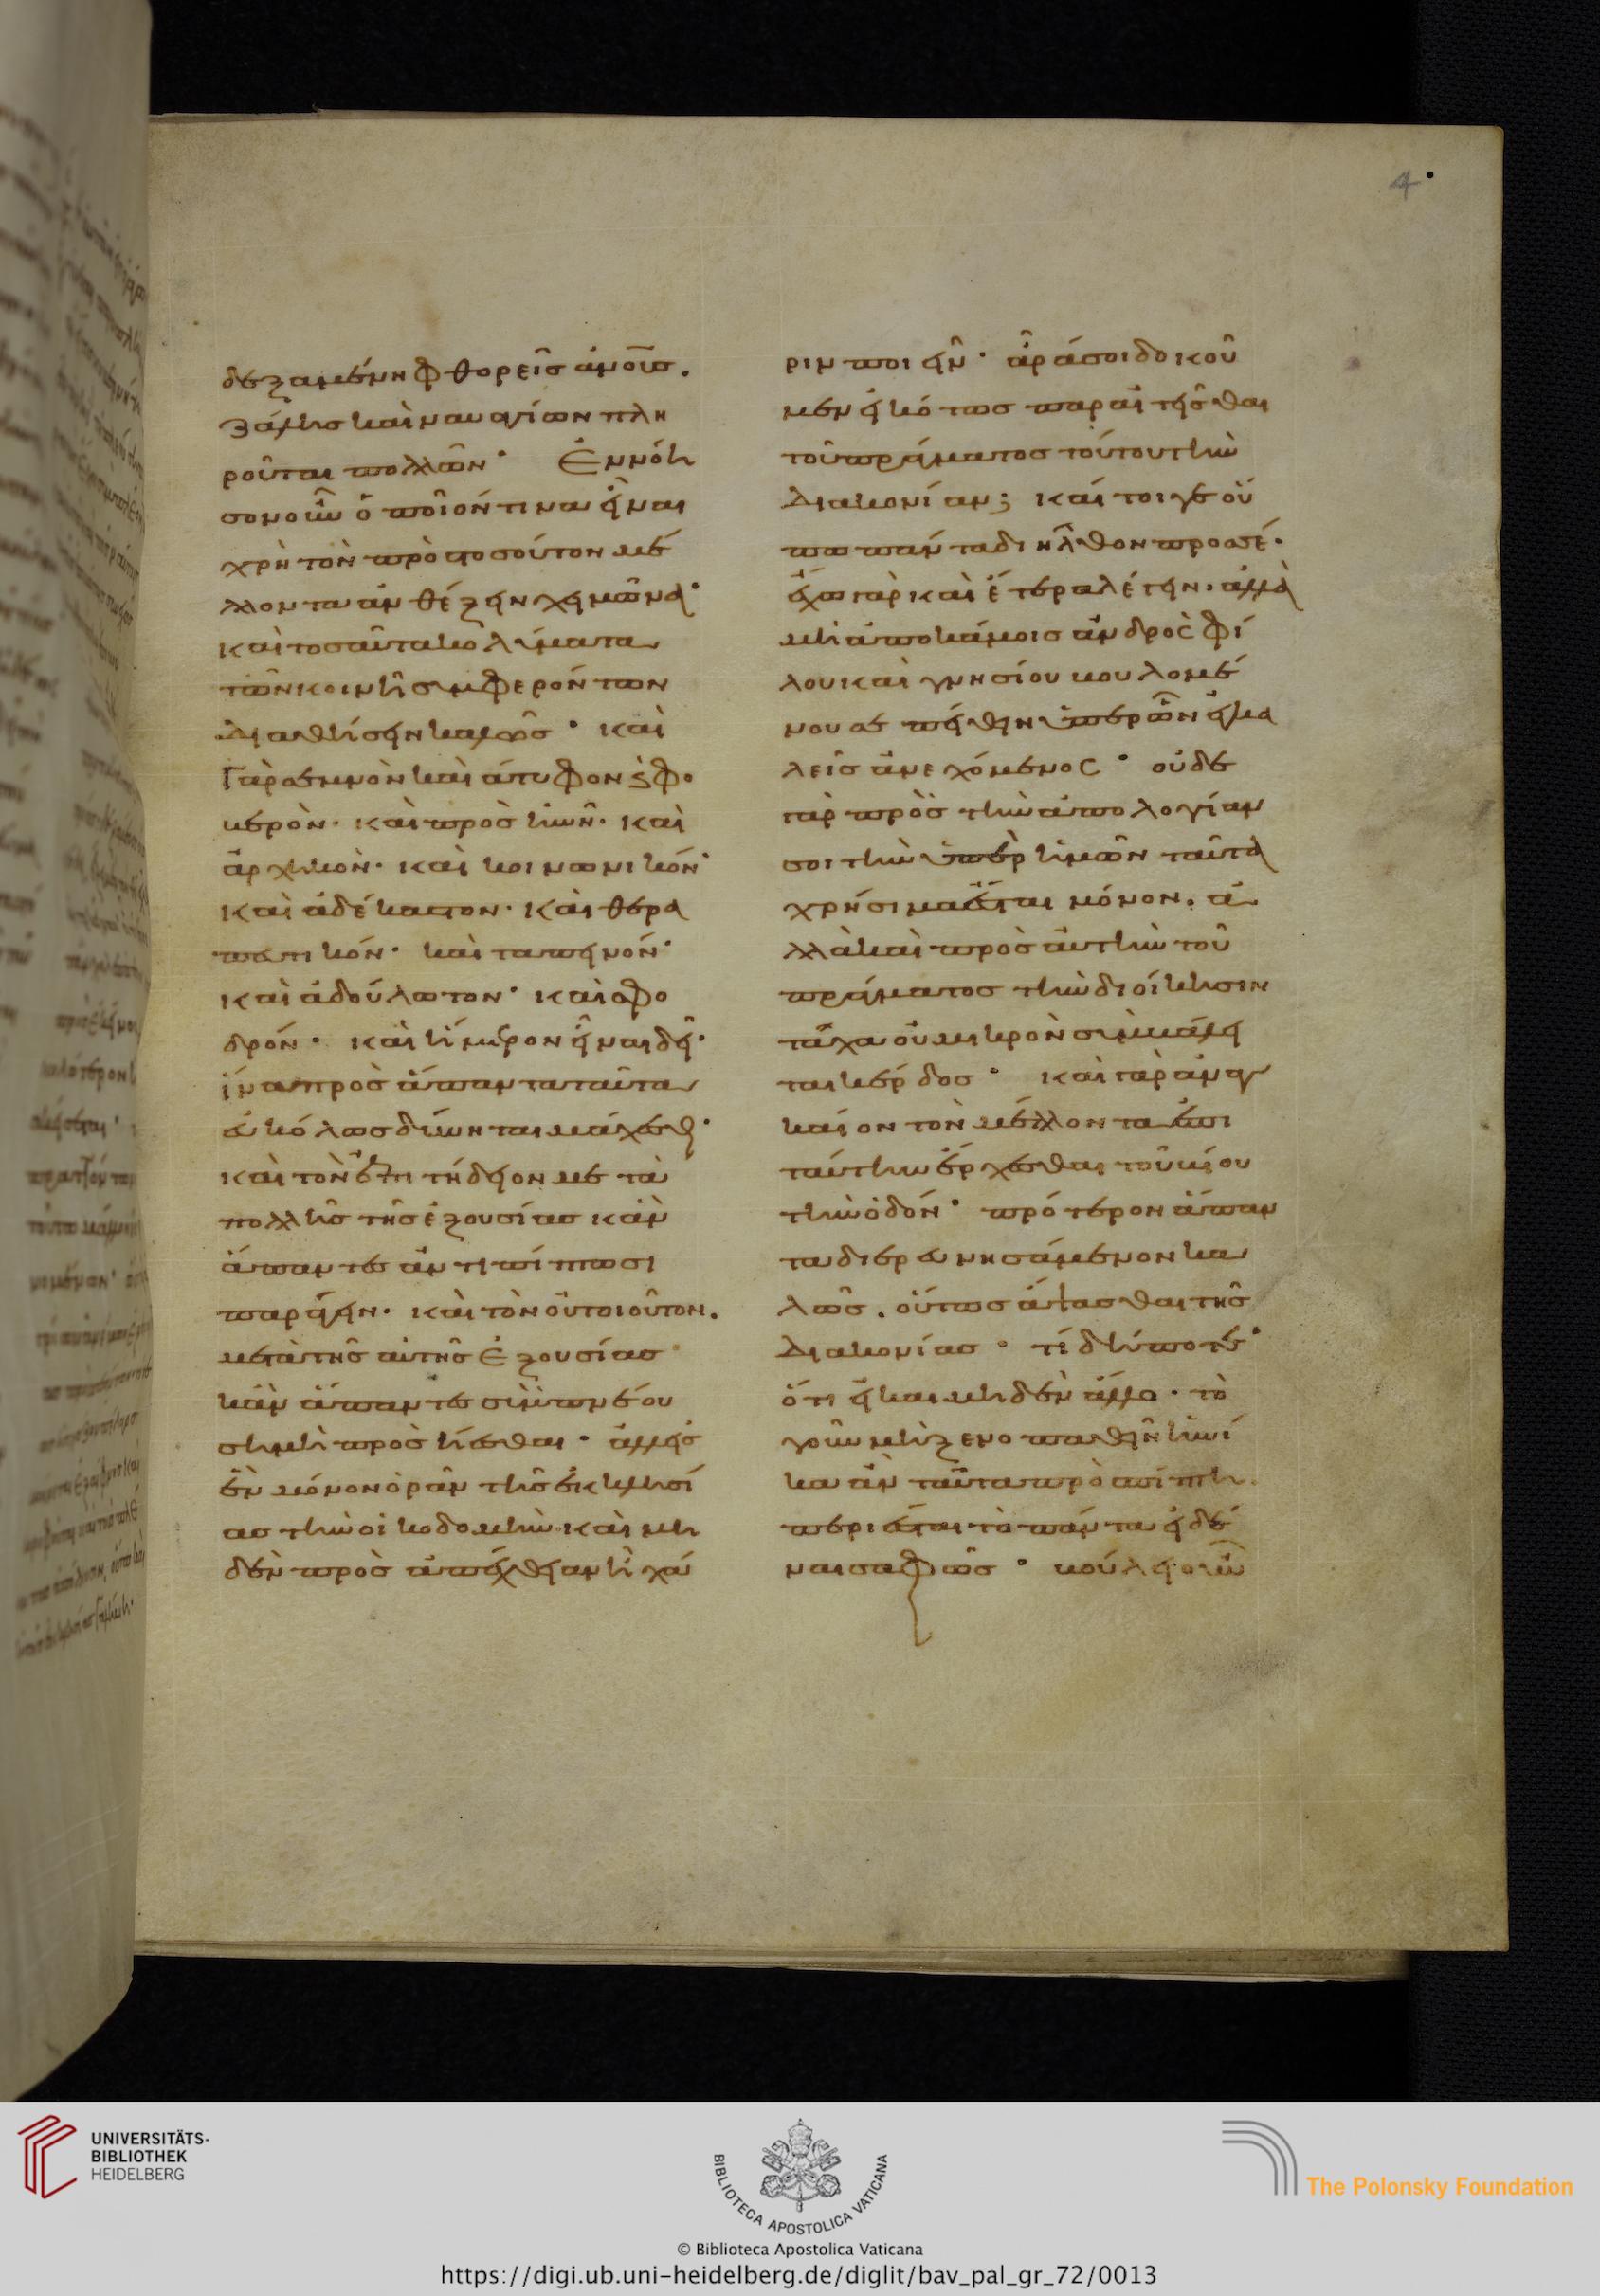 δεξαμένη φθορεῖς ἀνοῦσ.
ζάλησ καὶ ναυαγίων πλη
ροῦται πολλῶν· Ἐννόη
σον οὖν ὁποῖόν τινα εἶναι
χρὴ τὸν πρὸς τοσοῦτον μέ
λλοντα ἀνθέξειν χειμῶνα·
καὶ τοσαῦτα κωλύματα
τῶν κοινῆ συμφερόντων
διαθήσειν καλῶς· καὶ
γὰρ σεμνὸν καὶ ἄτυφον ϗ φο
βερὸν· καὶ προσηνῆ· καὶ
ἀρχικὸν· καὶ κοινωνικόν·
καὶ ἀδέκαστον· καὶ θερα
πευτικόν· καὶ ταπεινόν·
καὶ ἀδούλωτον· καὶ σφο
δρόν· καὶ ἥμερον εἶναι δεῖ·
ἵνα πρὸς ἅπαντα ταῦτα
εὐκόλως δύνηται μάχεσθαι·
καὶ τὸν ἐπιτήδειον μετὰ
πολλῆς τῆς ἐξουσίας κἂν
ἅπαντες ἀντιπίπτωσι
παράγειν· καὶ τὸν οὐ τοιοῦτον.
μετὰ τῆς αὐτῆς ἐξουσίας
κἂν ἅπαντες συμπνέου
σι μὴ προσίεσθαι· ἀλλ' εἰς
ἓν μόνον ὁρᾶν τῆς ἐκκλησί
ας τὴν οἰκοδομὴν· καὶ μη
δὲν πρὸς ἀπέχθειαν ἢ χά
ριν ποιεῖν· ἆρά σοι δοκοῦ
μεν εἰκότως παραιτεῖσθαι
τοῦ πράγματος τούτου τὴν
διακονίαν; καί τοι γε οὔ
πω πάντα διῆλθον προσσέ·
ἔχω γὰρ καὶ ἕτερα λέγειν· ἀλλὰ
μὴ ἀποκάμοις ἀνδρὸς φί
λου καὶ γνησίου βουλομέ
νου σε πείθειν ὑπὲρ ὧν ἐγκα
λεῖς ἀνεχόμενος· οὐδὲ
γὰρ πρὸς τὴν ἀπολογίαν
σοι τὴν ὑπὲρ ἡμῶν ταῦτα
χρήσιμα ἔσται μόνον. ἀ
λλὰ καὶ πρὸς αὐτὴν τοῦ
πράγματος τὴν διοίκησιν
τάχα οὐ μικρὸν συμβάλλε
ται κέρδος· καὶ γὰρ ἀναγ
καῖον τὸν μέλλοντα ἐπι
ταύτην ἔρχεσθαι τοῦ βίου
τὴν ὁδόν· πρότερον ἅπαν
τα διερευνησάμενον κα
λῶς. οὕτως ἅψασθαι τῆς
διακονίας· τί δήποτε·
ὅτι εἰ καὶ μηδὲν ἄλλο· τὸ
γοῦν μὴ ξενοπαθεῖν ἡνί
κα ἂν ταῦτα προσπίπτη.
περιέσται τὸ πάντα εἰδέ
ναι σαφῶς· βούλει οὖν